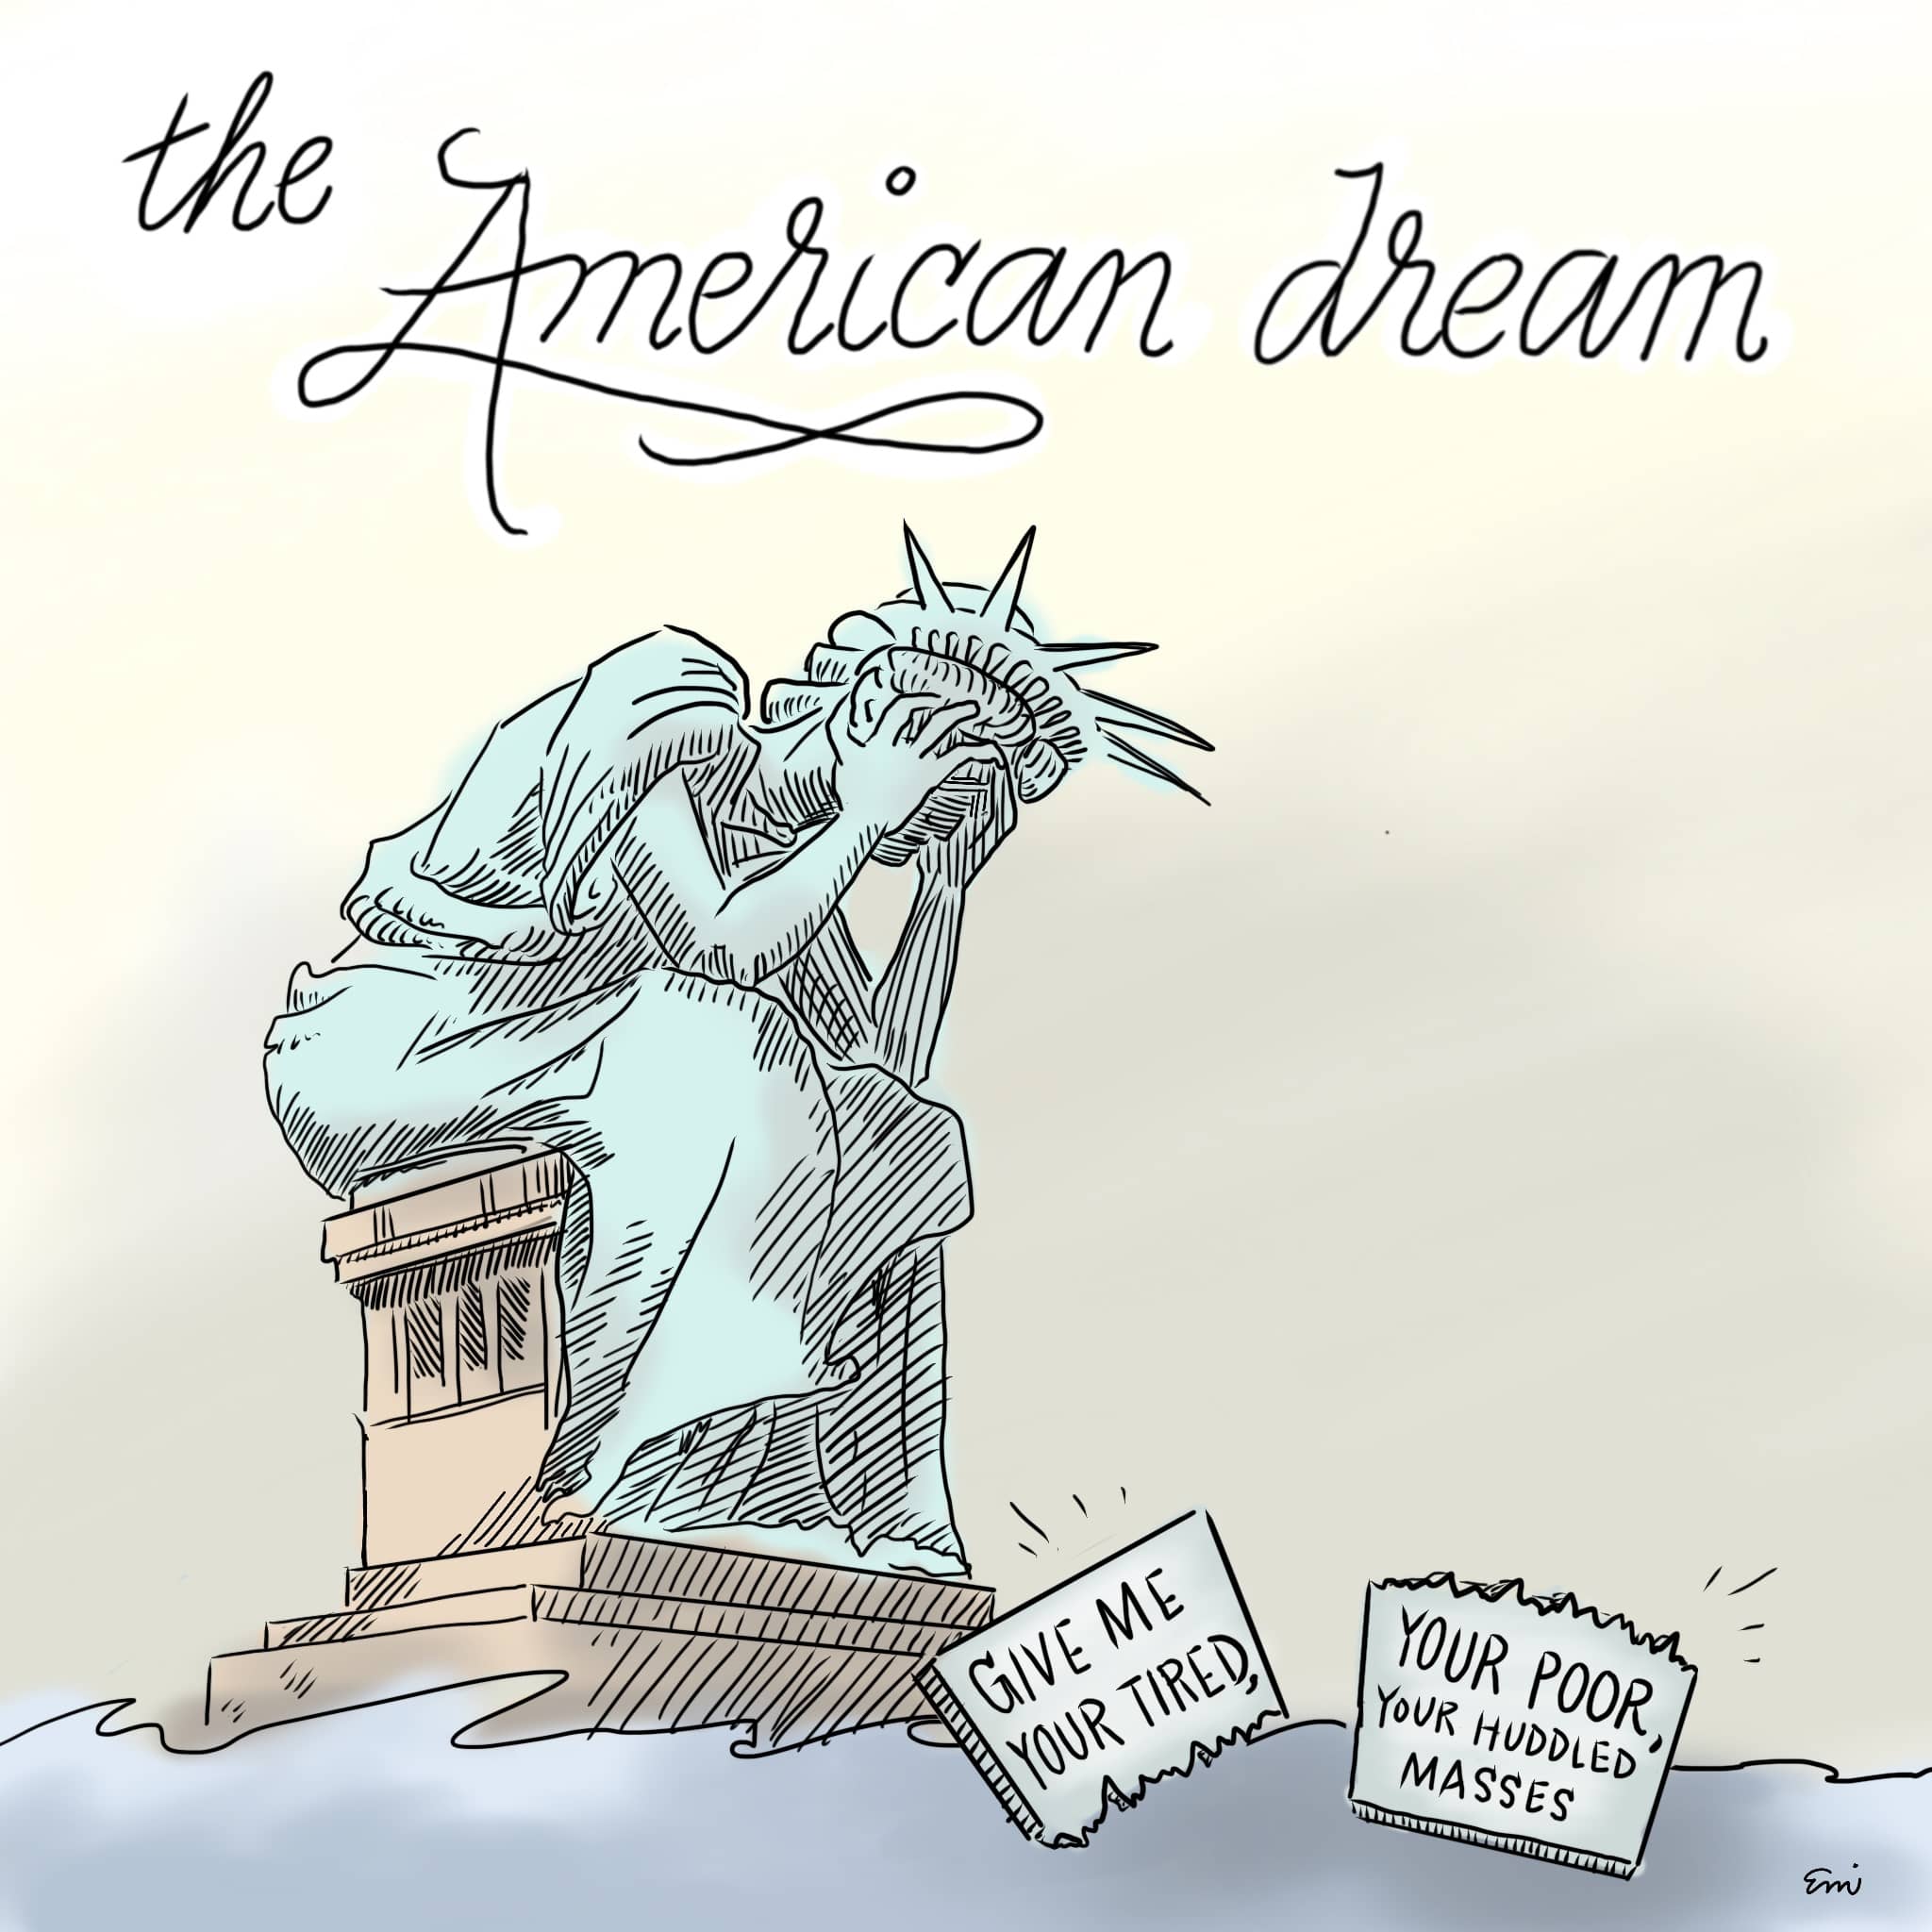 the American dream
GIVE ME
YOUR TIRED,
YOUR POOR,
YOUR HUDDLED
MASSES
Emi